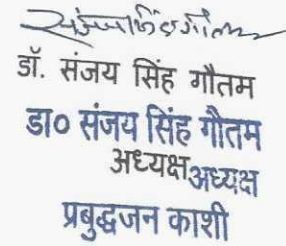 संजय सिंह गौतम
डॉ. संजय सिंह गौतम
डा० संजय सिंह गौतम
अध्यक्ष अध्यक्ष
प्रबुद्धजन काशी